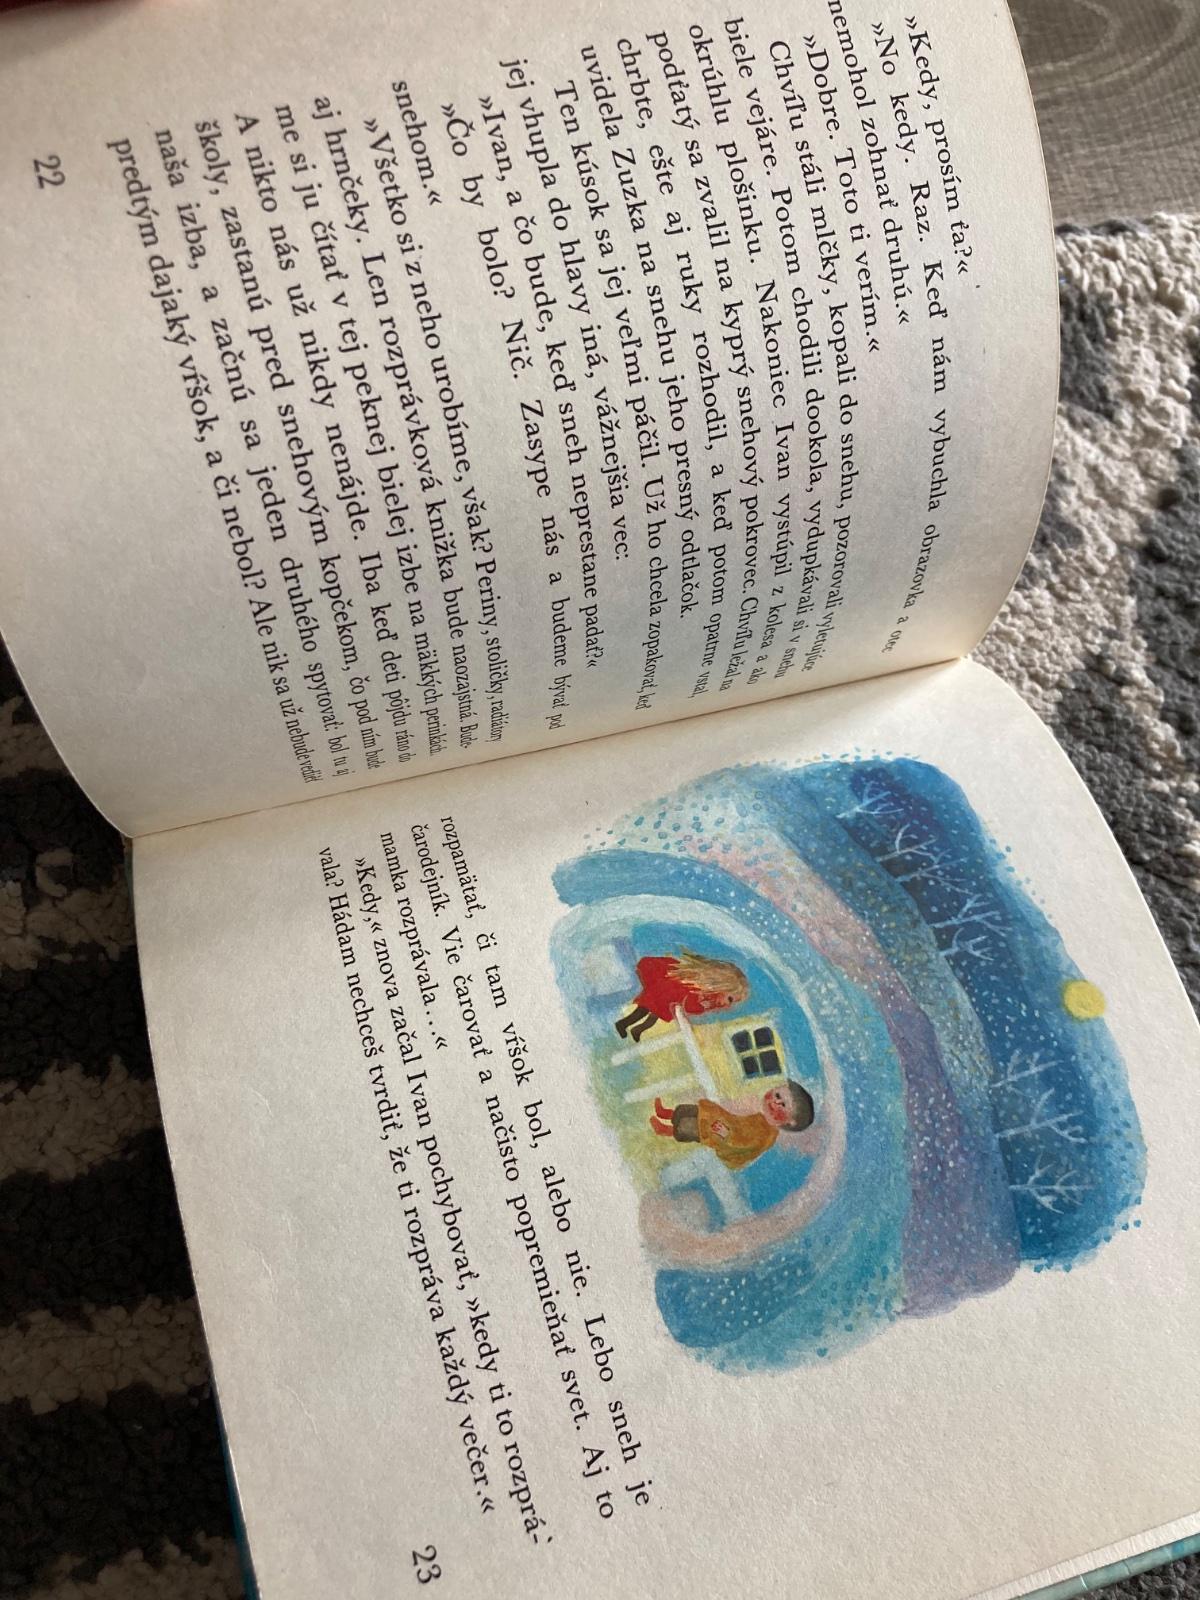 »Kedy, prosím ťa?«
»No kedy. Raz. Keď nám vybuchla obrazovka a otec
nemohol zohnať druhú.«
»Dobre. Toto ti verím.«
Chvíľu stáli mlčky, kopali do snehu, pozorovali vyletujúce
biele vejáre. Potom chodili dookola, vydupkávali si v snehu
okrúhlu plošinku. Nakoniec Ivan vystúpil z kolesa a ako
podťatý sa zvalil na kyprý snehový pokrovec. Chvíľu ležal na
chrbte, ešte aj ruky rozhodil, a keď potom opatrne vstal,
uvidela Zuzka na snehu jeho presný odtlačok.
Ten kúsok sa jej veľmi páčil. Už ho chcela zopakovať, keď
jej vhupla do hlavy iná, vážnejšia vec:
»Ivan, a čo bude, keď sneh neprestane padať?«
»Čo by bolo? Nič. Zasype nás a budeme bývať pod
snehom.«
»Všetko si z neho urobíme, však? Periny, stoličky, radiátory
aj hrnčeky. Len rozprávková knižka bude naozajstná. Bude-
me si ju čítať v tej peknej bielej izbe na mäkkých perinkách.
A nikto nás už nikdy nenájde. Iba keď deti pôjdu ráno do
školy, zastanú pred snehovým kopčekom, čo pod ním bude
naša izba, a začnú sa jeden druhého spytovať: bol tu aj
predtým dajaký vŕšok, a či nebol? Ale nik sa už nebude vedieť
22
rozpamätať, či tam vŕšok bol, alebo nie. Lebo sneh je
čarodejník. Vie čarovať a načisto popremieňať svet. Aj to
mamka rozprávala...«
»Kedy,« znova začal Ivan pochybovať, »kedy ti to rozprá-
vala? Hádam nechceš tvrdiť, že ti rozpráva každý večer.«
23